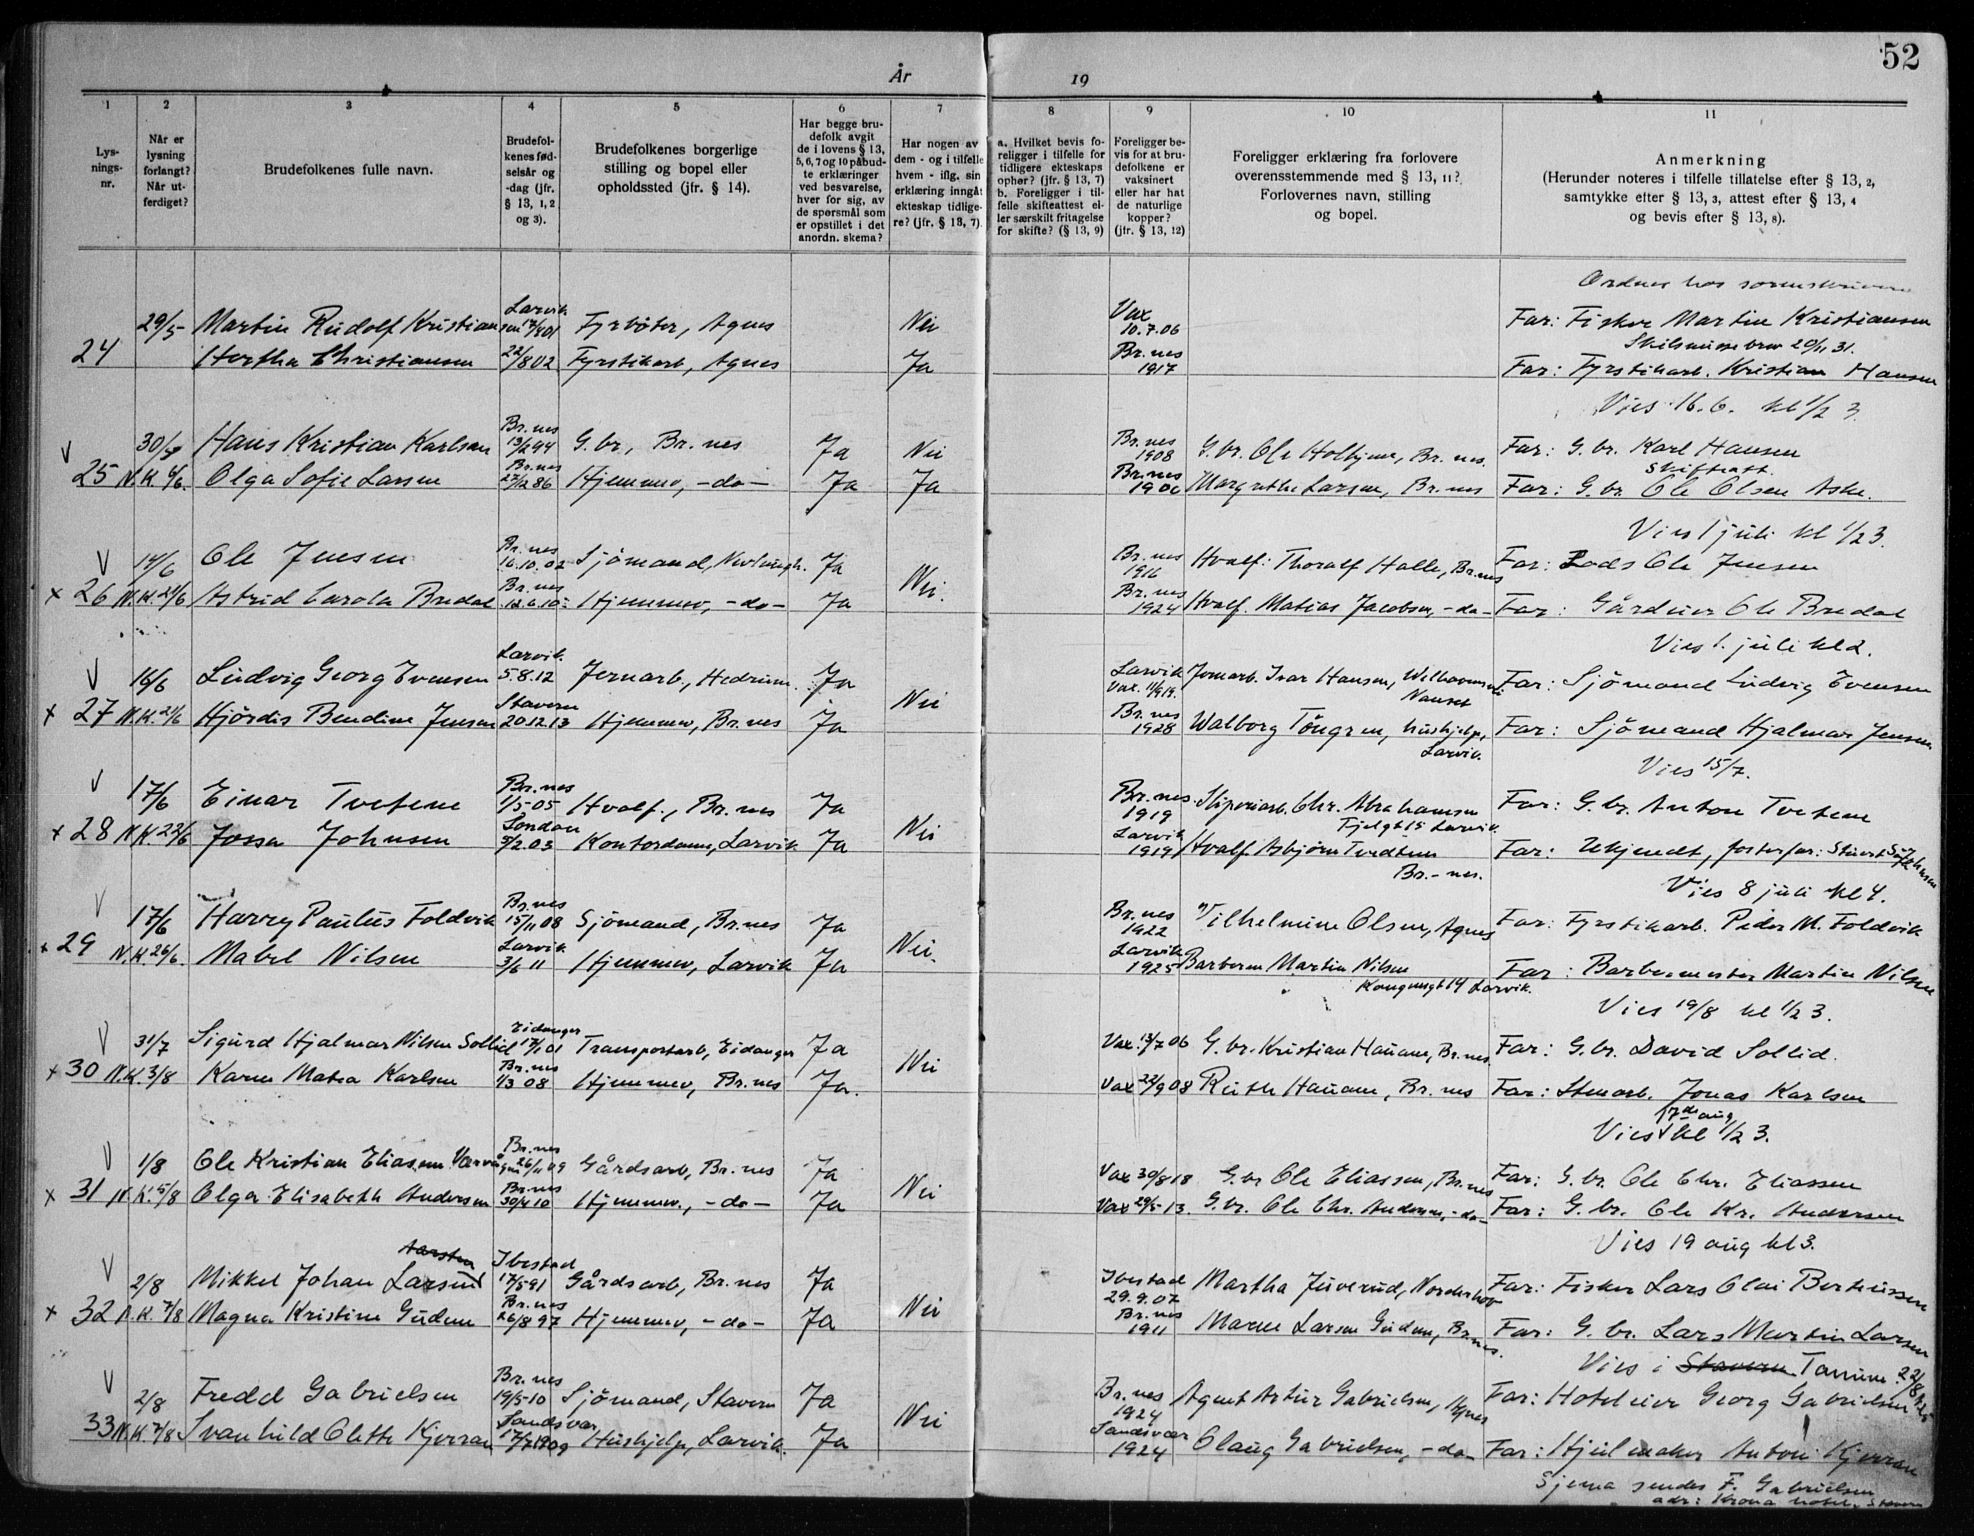 52
År 19
1 2 3 4 5 6 7 8 9 10 11
Lys-
nings-
nr.
Når er
lysning
forlangt?
Når ut-
ferdiget?
Brudefolkenes fulle navn.
Brudefol-
kenes fød-
selsår og
-dag (jfr.
§ 13, 1, 2
og 3).
Brudefolkenes borgerlige
stilling og bopel eller
opholdssted (jfr. § 14).
Har begge bru-
defolk avgit
de i lovens § 13,
5, 6, 7 og 10 påbud-
te erklæringer
ved besvarelse,
hver for sig, av
de spørsmål som
er opstillet i det
anordn. skema?
Har nogen av
dem - og i tilfelle
hvem - iflg. sin
erklæring inngåt
ekteskap tidlige-
re? (jfr. § 13, 7).
a. Hvilket bevis fo-
religger i tilfelle for
tidligere ekteskaps
ophør? (jfr. § 13, 7)
b. Foreligger i til-
felle skifteattest el-
ler særskilt fritagelse
for skifte? (§ 13, 9)
Foreligger be-
vis for at bru-
defolkene er
vaksinert
eller har hat
de naturlige
kopper?
(jfr. § 13, 12)
Foreligger erklæring fra forlovere
overensstemmende med § 13, 11?
Forlovernes navn, stilling
og bopel.
Anmerkning
(Herunder noteres i tilfelle tillatelse efter § 13, 2,
samtykke efter § 13, 3, attest efter § 13, 4
og bevis efter § 13, 8).
Ordnes hos
29/5 Martin Rudolf Kristiansen Larvik Fyrbøter, Agnes Nei Vax 10.7.06 Far: Fisker Martin Kristiansen
24 Hertha Christiansen 22/8 02 Fyrstikarb, Agnes Ja Br.nes 1917 Far: Fyrstikarb. Kristian Hansen
Vies 16.6. kl 1/2 3
V Hans Kristian Karlsen Br.nes G.br, Br.nes Ja Nei Br.nes 1908 Far: G.br. Karl Hansen
Skifteatt.
25 N.K. Olga Sofie Larsen Br.nes Hjemmev, -do- Ja Ja Br.nes 1906 Margrethe Larsen, Br.nes Far: G.br. Ole Olsen Aske.
Vies 1 juli kl 1/2 3.
V 14/6 Ole Jensen Br.nes 16.10.02 Sjømand, Ja Nei. Br.nes 1916 Hvalf: Thoralf Halle, Br.nes Far: Lods Ole Jensen
x 26 N.K. 21/6 Astrid Carola Bredal Br.nes 12.6.10 Hjemmev, -do- Ja Br.nes 1924 Hvalf. Matias Jacobsen, -do- Far: Gårdeier Ole Bredal
Vies 1. juli kl 2.
V 16/6 Ludvig Georg Evensen Larvik 5.8.12 Jernarb., Hedrum. Ja Nei Larvik Jernarb. Ivar Hansen, Nanset Far: Sjømand Ludvig Evensen
x 27 N.K. 21/6 Hjørdis Bendine Jensen Stavern 20.12.13 Hjemmev, Br.nes Ja Br.nes 1928 Walborg Töngren, hushjelp, Larvik. Far: Sjømand Hjalmar Jensen
Vies 15/7.
V 17/6 Einar Tvetene Br.nes 1/5-05 Hvalf., Br.nes Ja Nei Br.nes 1919 Chr. Abrahamsen Fjelgt 15 Larvik Far: G.br. Anton Tvetene
x 28 N.K. 22/6 Jossa Johnsen London 3/2.03 Kontordame, Larvik Ja Larvik 1919 Hvalf. Asbjørn Tvedtene Br.-nes. Far: Ukjendt, fosterfar:
Vies 8 juli kl 4.
V 17/6 Harry Paulus Foldvik Br.nes 15/11 08 Sjømand, Br.nes Ja Nei. Br.nes 1922 Vilhelmine Olsen, Agnes Far: Fyrstikarb. Peder M. Foldvik
x 29 N.K. 26/6. Mabel Nilsen Larvik 3/6 11 Hjemmev, Larvik Ja Larvik 1925 Barberm Martin Nilsen Kongensgt 14 Larvik. Far: Barbermester Martin Nilsen
Vies 19/8 kl 1/2 3.
V 31/7 Sigurd Hjalmar Nilsen Sollid Eidanger 17/1 01 Transportarb, Eidanger Ja Nei Vax. 13/7 06 G.br. Kristian Hauane, Br.nes. Far: G.br. David Sollid.
x 30 N.K. 3/8 Karen Matea Karlsen Br.nes 1/3 08 Hjemmev, Br.nes Ja. Vax 22/9 08 Ruth Hauane, Br.nes Far: Stenarb. Jonas Karlsen
17de aug
Vies kl 1/2 3.
V 1/8 Ole Kristian Eliassen Br.nes 26/11 09 Gårdsarb, Br.nes Ja Nei Vax 30/8 18 G.br Ole Eliassen, Br.nes Far: G.br. Ole Chr. Eliassen
x 31 N.K. 5/8 Olga Elisabeth Andersen Br.nes 30/4 10 Hjemmev., -do- Ja Vax 29/5-13. G.br. Ole Chr. Andersen, -do- Far: G.br. Ole Kr. Andersen
Vies 19 aug kl 3.
V 2/8 Mikkel Johan Larsen Ibestad 17/5 91 Gårdsarb, Br.nes Ja Nei Ibestad 29.9.07 Martha Juverud, Norderhov Far: Fisker Lars Olai Berteussen
x 32 N.K. 7/8 Magna Kristine Gudem Br.nes 26/8 97 Hjemmev, -do- Ja Br.nes 1911 Maren Larsen Gudem, Br.nes. Far: G.br. Lars Martin Larsen
Vies i Stavern Tanum 22/8
V 2/8 Fredd Gabrielsen Br.nes 19/5-10 Sjømand, Stavern Ja Nei Br.nes 1924 Agent Artur Gabrielsen, Agnes Far: Hoteleier Georg Gabrielsen
33 N.K. 7/8 Svanhild Olette Kjerran Sandsvær 17/7 1909 Hushjelp, Larvik. Ja Sandsvær 1924 Olaug Gabrielsen, -do- Far: Hjulmaker Anton Kjerran
Sjema sendes F. Gabrielsen
adr: Krona hotel, Stavern